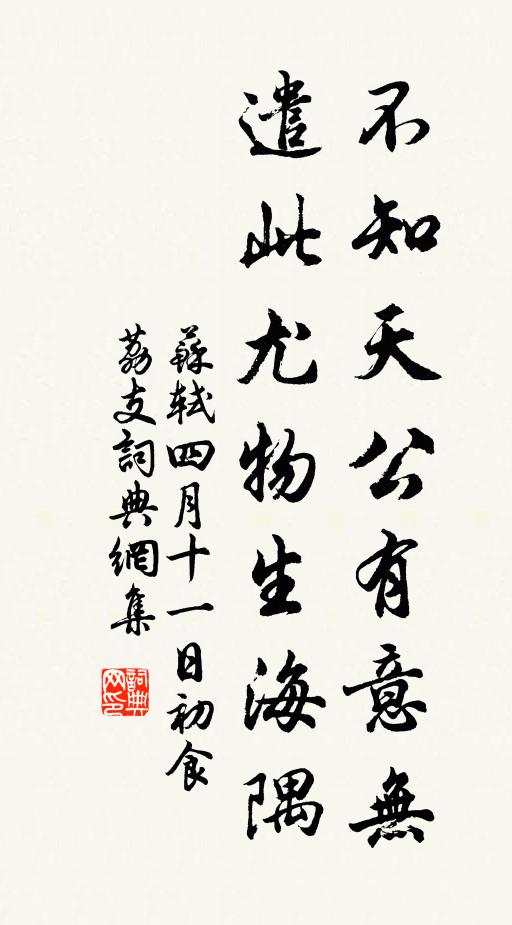 不知天公有意無
遣此尤物生海隅
蘇軾四月十一日初食
荔支詞典網集
詞典网印